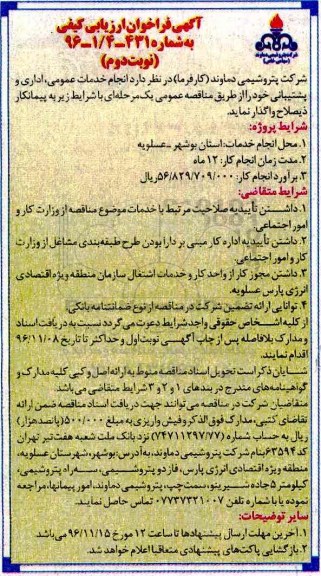 آگهی فراخوان ارزیابی کیفی
به شماره ۴۳۱-۱/۴-۹۶
(نوبت دوم)
شرکت پتروشیمی دماوند (کارفرما) در نظر دارد انجام خدمات عمومی، اداری و
پشتیبانی خود را از طریق مناقصه عمومی یک مرحله‌ای با شرایط زیر به پیمانکار
ذیصلاح واگذار نماید.
شرایط پروژه:
۱. محل انجام خدمات: استان بوشهر - عسلویه
۲. مدت زمان انجام کار: ۱۲ ماه
۳. برآورد انجام کار: ۵۶/۸۲۹/۷۰۹/۰۰۰ ریال
شرایط متقاضی:
۱. داشتن تأییدیه صلاحیت مرتبط با خدمات موضوع مناقصه از وزارت کار و
امور اجتماعی.
۲. داشتن تأییدیه اداره کار مبنی بر دارا بودن طرح طبقه‌بندی مشاغل از وزارت
کار و امور اجتماعی.
۳. داشتن مجوز کار از واحد کار و خدمات اشتغال سازمان منطقه ویژه اقتصادی
انرژی پارس عسلویه.
۴. توانایی ارائه تضمین شرکت در مناقصه از نوع ضمانتنامه بانکی.
از کلیه اشخاص حقوقی واجد شرایط دعوت می‌گردد نسبت به دریافت اسناد
و مدارک بلافاصله پس از چاپ آگهی نوبت اول و حداکثر تا تاریخ ۹۶/۱۱/۰۸
اقدام نمایند.
شایان ذکر است تحویل اسناد مناقصه منوط به ارائه اصل و کپی کلیه مدارک و
گواهینامه‌های مندرج در بندهای ۱ و ۲ و ۳ شرایط متقاضی می‌باشد.
متقاضیان شرکت در مناقصه می‌توانند جهت دریافت اسناد مناقصه ضمن ارائه
تقاضای کتبی، مدارک فوق الذکر و فیش واریزی به مبلغ ۵۰۰/۰۰۰ (پانصد هزار)
ریال به حساب شماره (۷۴۷۱۱۲۹۷/۷۷) نزد بانک ملت شعبه هفت تیر تهران
کد ۶۳۵۹۴ بنام شرکت پتروشیمی دماوند، به آدرس: بوشهر، شهرستان عسلویه،
منطقه ویژه اقتصادی انرژی پارس، فاز دو پتروشیمی، سه راه پتروشیمی،
کیلومتر ۵ جاده شیرینو، سمت چپ، پتروشیمی دماوند، امور پیمانها، مراجعه
نموده یا با شماره تلفن ۰۷۷۳۷۳۲۱۰۰۷ تماس حاصل نمایند.
سایر توضیحات:
۱. آخرین مهلت ارسال پیشنهادها تا ساعت ۱۲ مورخ ۹۶/۱۱/۱۵ می‌باشد.
۲. بازگشایی پاکت‌های پیشنهادی متعاقبا اعلام خواهد شد.